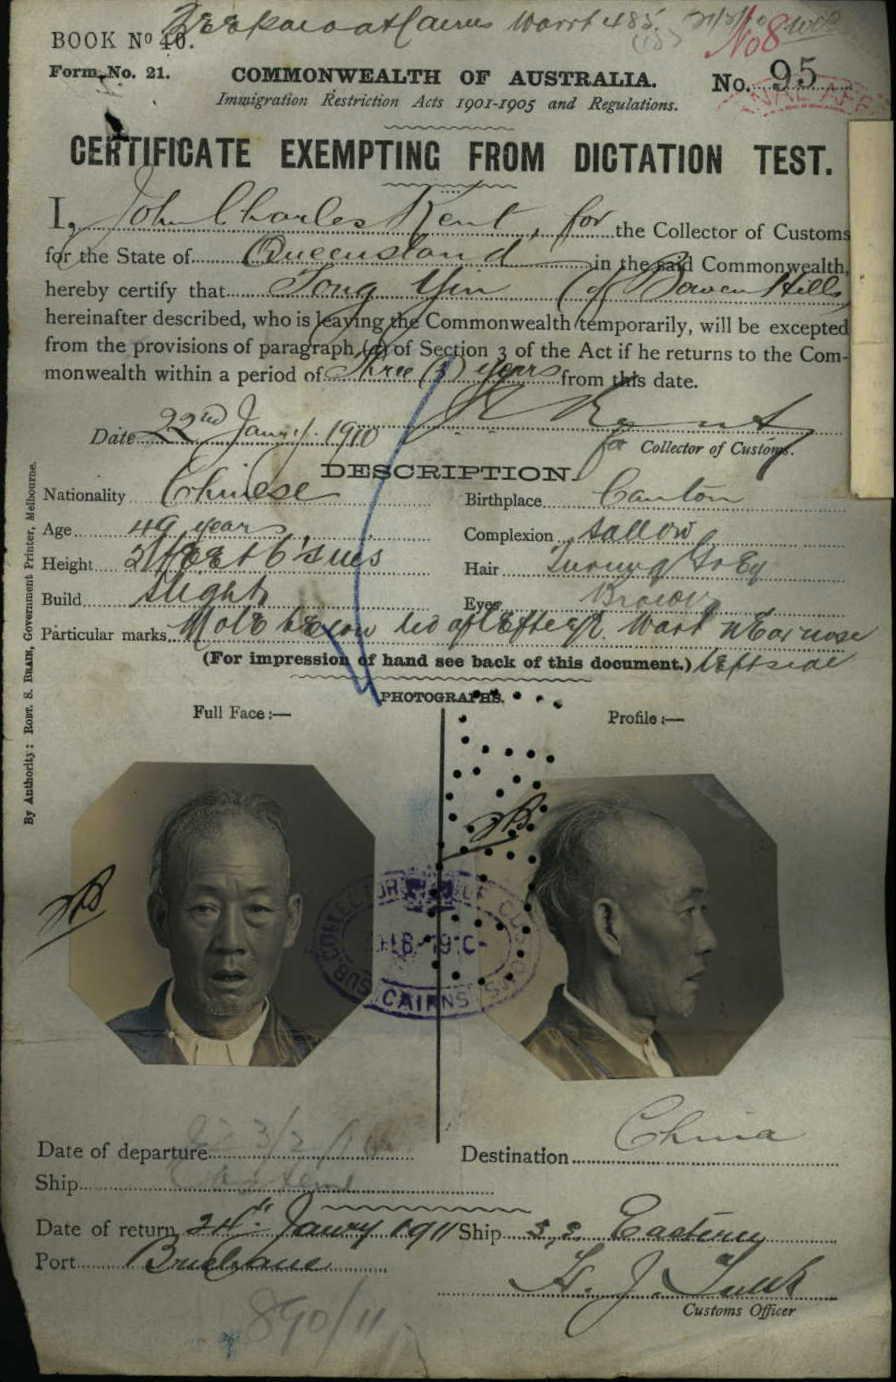 BOOK No 40.
at Cairns Warrt 485.
No 8
Form No. 21.
COMMONWEALTH OF AUSTRALIA.
No. 95
Immigration Restriction Acts 1901-1905 and Regulations.
CERTIFICATE EXEMPTING FROM DICTATION TEST.
I, John Charles Kent, for the Collector of Customs
for the State of Queensland in the said Commonwealth,
hereby certify that Tong Yin (of Bowen Hills
hereinafter described, who is leaving the Commonwealth temporarily, will be excepted
from the provisions of paragraph (a) of Section 3 of the Act if he returns to the Com-
monwealth within a period of Three (3) years from this date.
Date 22nd Jany. 1910
J C Kent
for Collector of Customs.
DESCRIPTION.
Nationality Chinese
Birthplace Canton
Age 49 years
Complexion Sallow
Height 5 feet 6 ins
Hair Turning Grey
Build Slight
Eyes Brown
Particular marks Mole below lid of left eye. Wart near nose
left side
(For impression of hand see back of this document.)
PHOTOGRAPHS.
Full Face :—
Profile :—
By Authority : ROBT. S. BRAIN, Government Printer, Melbourne.
SUB COLLECTOR OF CUSTOMS
CAIRNS
Date of departure 3/2/10
Destination China
Ship Eastern
Date of return 24th Janry 1911 Ship S.S. Eastern
Port Brisbane
Customs Officer
890/11